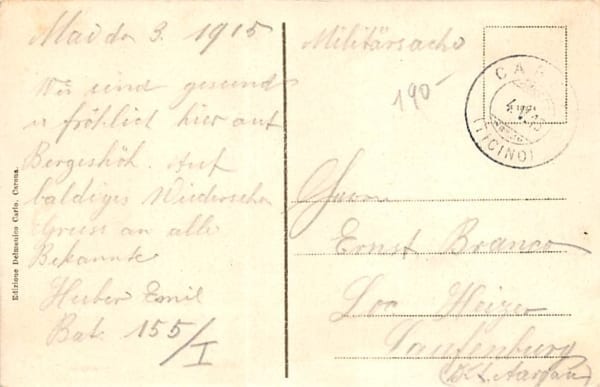 Mai den 3. 1915
Wir sind gesund
u fröhlich hier auf
Bergeshöh. Auf
baldiges Wiedersehn
Gruss an alle
Bekannte
Huber Emil
Bat. 155/I
Edizione Delmenico Carlo, Carona.
Militärsache
190-
CAR
(TICINO)
Herrn
Ernst Branco
Heizer
Laufenburg
(Kt. Aargau)